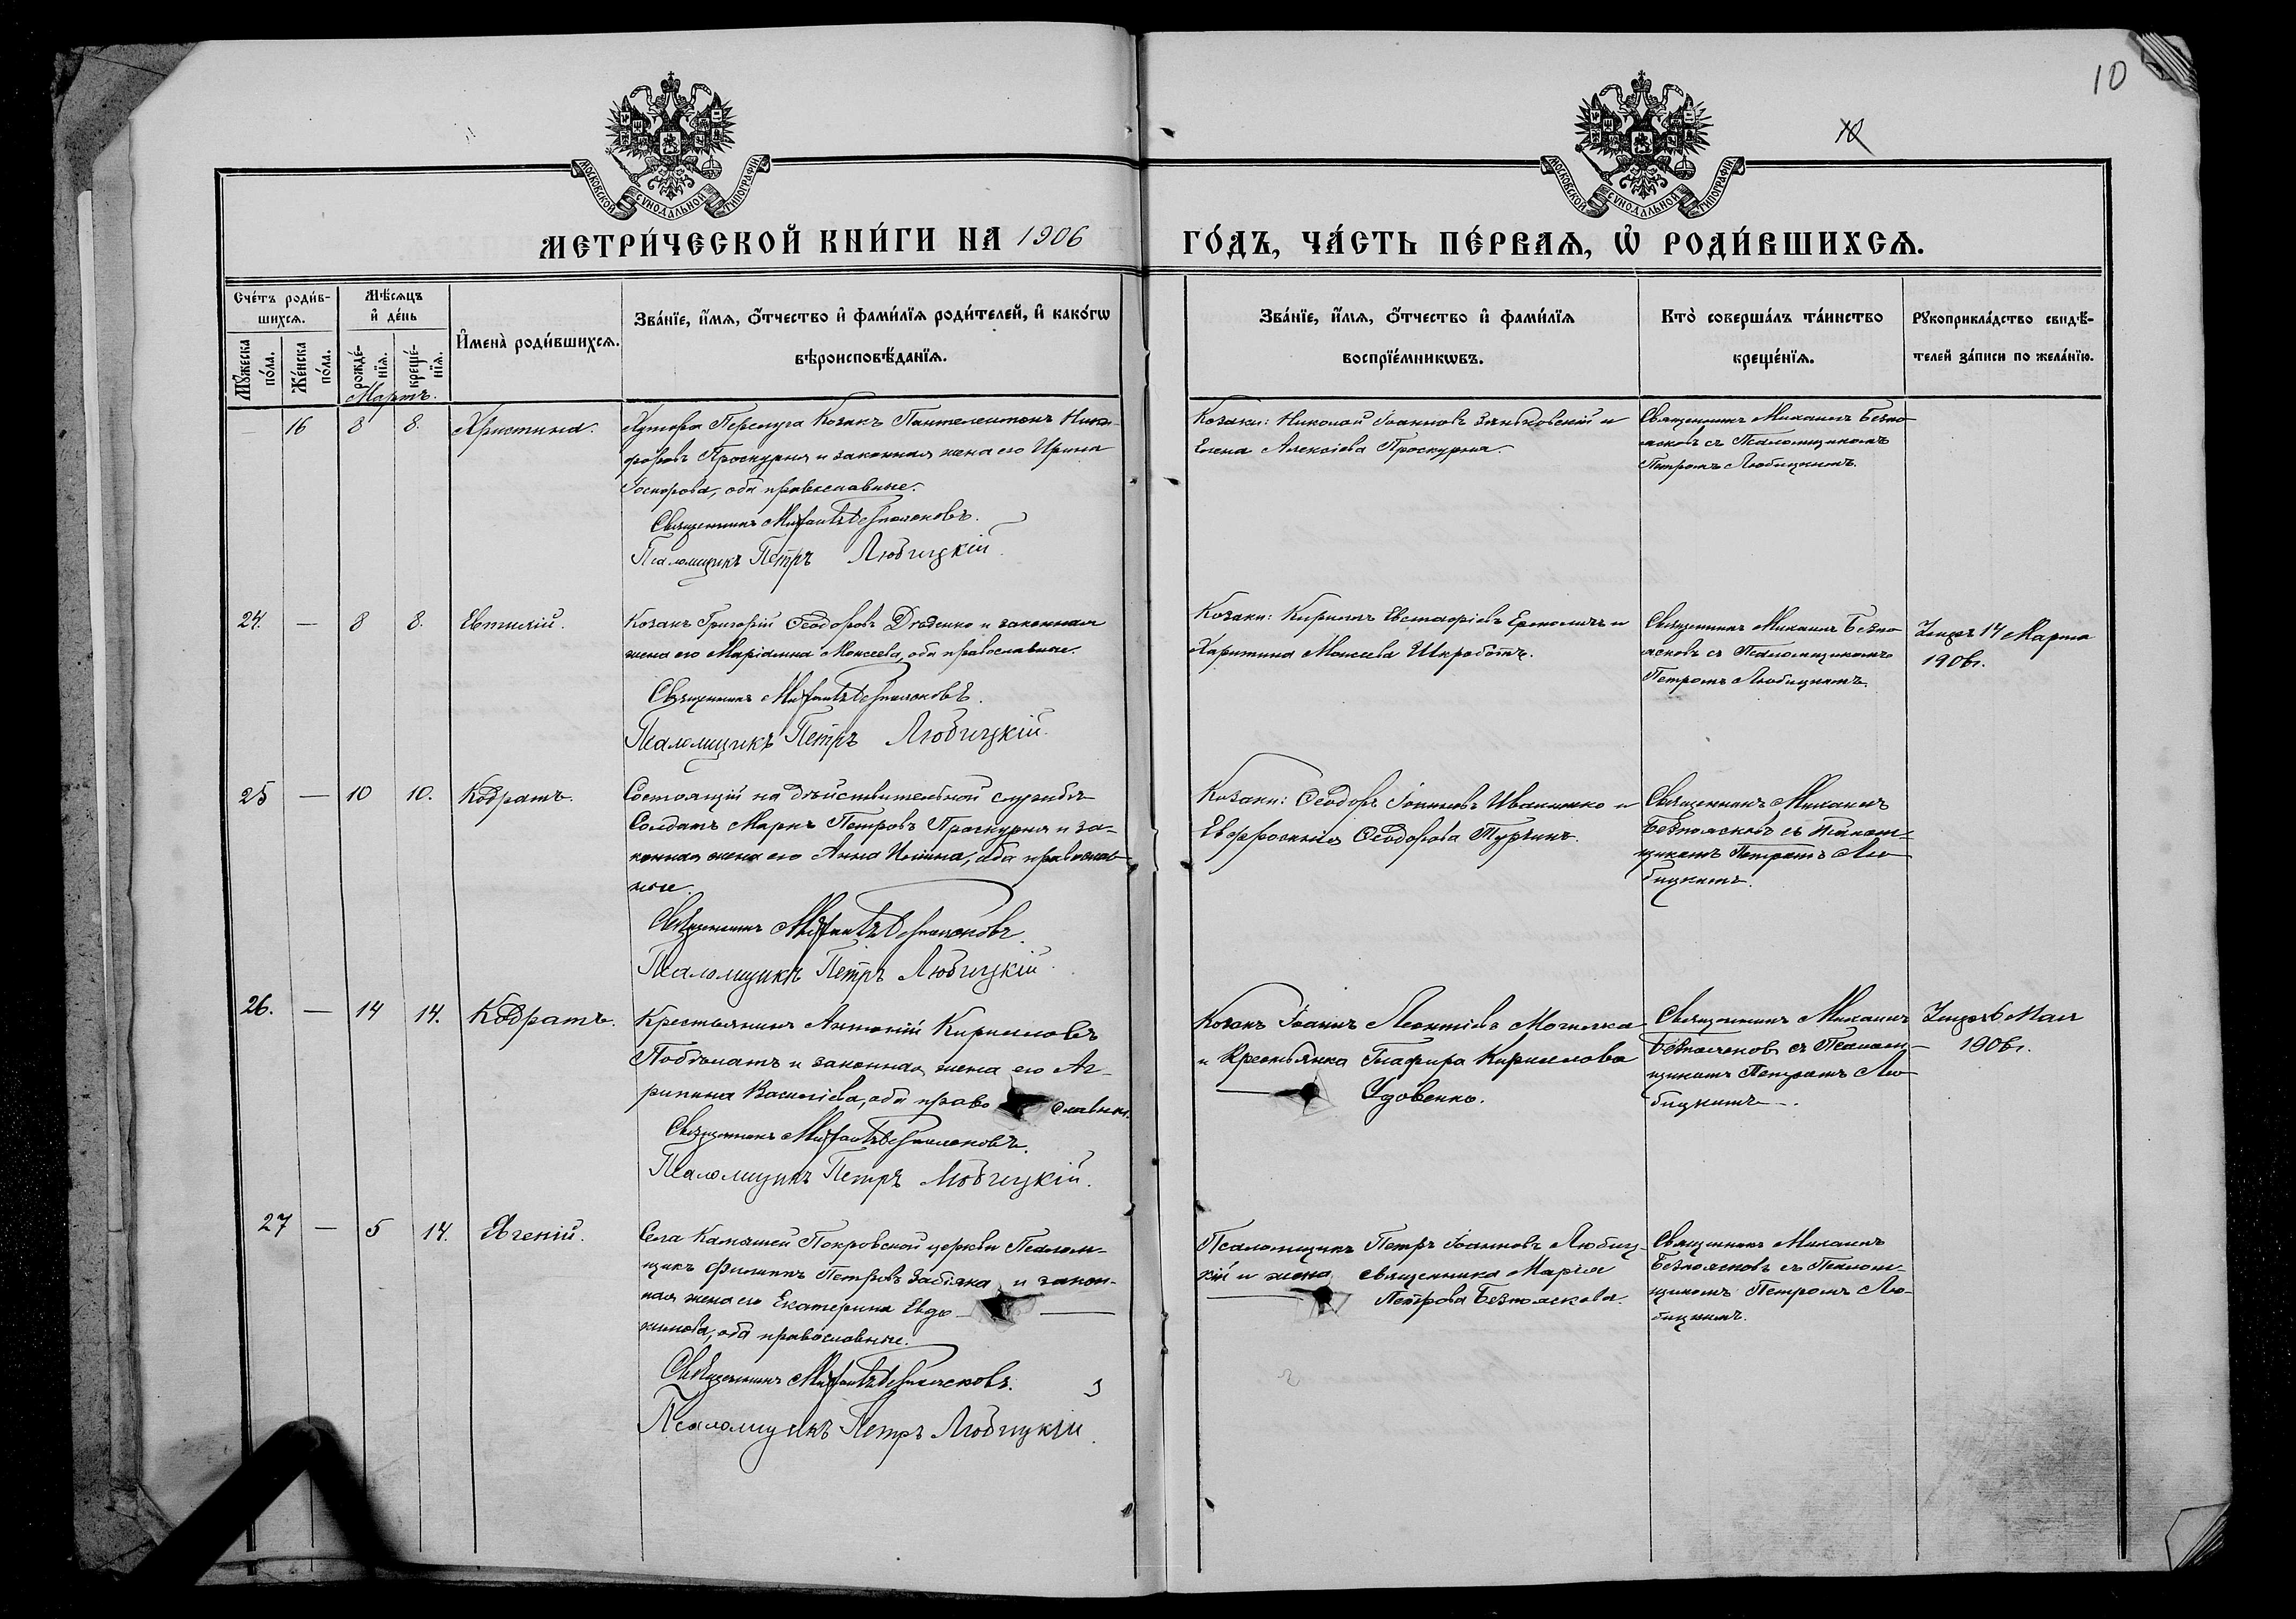 10
10
МОСКОВСКОЙ СУНОДАЛЬНОЙ ТИПОГРАФІИ
МОСКОВСКОЙ СУНОДАЛЬНОЙ ТИПОГРАФІИ
МЕТРИ́ЧЕСКОЙ КНИ́ГИ НА 1906
ГО́ДЪ, ЧА́СТЬ ПЕ́РВАѦ, Ѡ РОДИ́ВШИХСѦ.
Сче́тъ роди́в-
шихсѧ.
Мꙋ́жеска по́ла.
Же́нска по́ла.
Мѣ́сѧцъ
и де́нь
рожде́-
нїѧ.
креще́-
нїѧ.
Имена̀ роди́вшихсѧ.
Зва́нїе, и́мѧ, о́тчество и фами́лїѧ роди́телей, и како́гѡ
вѣроисповѣ́данїѧ.
Зва́нїе, и́мѧ, о́тчество и фами́лїѧ
воспрїе́мникѡвъ.
Кто̀ соверша́лъ та́инство
креще́нїѧ.
Рꙋкоприкла́дство свидѣ́-
телей за́писи по жела́нїю.
Мартъ.
— 16 8 8. Христина.
Хутора Козакъ Пантелеимонъ Ники-
форовъ Проскурня и законная жена его Ирина
оба православные.
Священникъ Михаилъ Безпоясковъ.
Псаломщикъ Петръ Любицкій.
Козаки: Николай Іоанновъ Зеньковскій и
Елена Алексіева Проскурня.
Священникъ Михаилъ Безпо
ясковъ съ Псаломщикомъ
Петромъ Любицкимъ.
24. — 8 8. Евтихій.
Козакъ Григорій Ѳеодоровъ и законная
жена его Маріанна Моисеева, оба православные.
Священникъ Михаилъ Безпоясковъ.
Псаломщикъ Петръ Любицкій.
Козаки: Кириллъ Евстафіевъ и
Харитина Моисеева
Священникъ Михаилъ Безпо
ясковъ съ Псаломщикомъ
Петромъ Любицкимъ.
14 Марта
1906 г.
25 — 10 10. Кодратъ.
Состоящій на дѣйствительной службѣ
Солдатъ Марко Петровъ Проскурня и за-
конная жена его Анна Ильина, оба православ-
ные.
Священникъ Михаилъ Безпоясковъ.
Псаломщикъ Петръ Любицкій.
Козаки: Ѳеодоръ Іоанновъ Иваненко и
Евфросинія Ѳеодорова Турчинъ.
Священникъ Михаилъ
Безпоясковъ съ Псалом-
щикомъ Петромъ Лю-
бицкимъ.
26. — 14 14. Кодратъ.
Крестьянинъ Антоній Кирилловъ
и законная жена его Аг-
рипина Василіева, оба право славные.
Священникъ Михаилъ Безпоясковъ.
Псаломщикъ Петръ Любицкій.
Козакъ Іоаннъ Леонтіевъ Могилка
и Крестьянка Глафира Кириллова
Удовенко.
Священникъ Михаилъ
Безпоясковъ съ Псалом-
щикомъ Петромъ Лю-
бицкимъ.
6 Мая
1906 г.
27 — 5 14. Евгеній.
Села Камышей Покровской церкви Псалом-
щикъ Филиппъ Петровъ Забіяка и закон-
ная жена его Екатерина Евдо-
кимова, оба православные.
Священникъ Михаилъ Безпоясковъ.
Псаломщикъ Петръ Любицкій.
Псаломщикъ Петръ Іоанновъ Любиц-
кій и жена священника Марія
Петрова Безпояскова.
Священникъ Михаилъ
Безпоясковъ съ Псалом-
щикомъ Петромъ Лю-
бицкимъ.